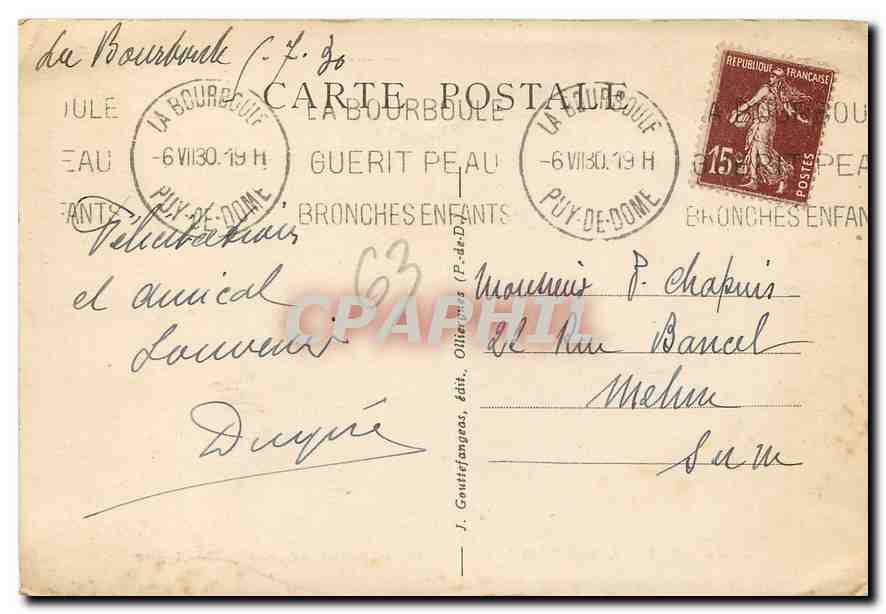 La Bourboule 5. 7. 30
CARTE POSTALE
LA BOURBOULE
-6 VII 30. 19 H
PUY-DE-DOME
OULE
EAU
FANTS
LA BOURBOULE
GUERIT PEAU
BRONCHES ENFANTS
LA BOURBOULE
-6 VII 30. 19 H
PUY-DE-DOME
A BOURBOU
GUERIT PEA
BRONCHES ENFAN
REPUBLIQUE FRANÇAISE
15c
POSTES
Félicitations
et amical
souvenir
63
CPAPHIL
J. Gouttefangeas, édit., Olliergues (P.-de-D.)
Monsieur P. Chapuis
Rue Bancel
Melun
S et M